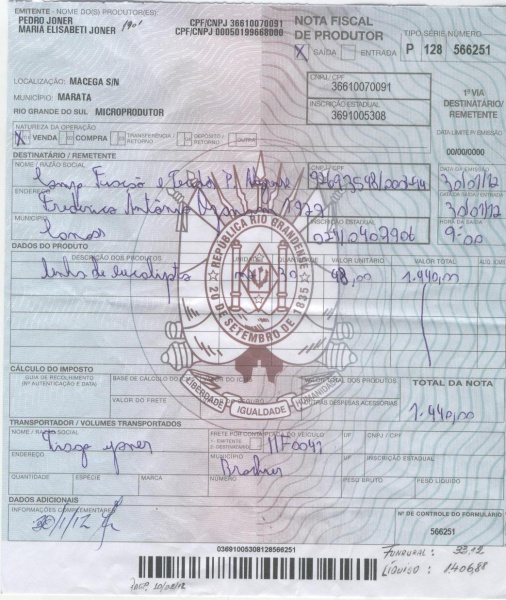 EMITENTE - NOME DO(S) PRODUTOR(ES):
PEDRO JONER
MARIA ELISABETI JONER
CPF/CNPJ 36610070091
CPF/CNPJ 00050199668000
NOTA FISCAL
DE PRODUTOR
X SAÍDA ENTRADA
TIPO SÉRIE NÚMERO
P 128 566251
LOCALIZAÇÃO: MACEGA S/N
MUNICÍPIO: MARATA
RIO GRANDE DO SUL MICROPRODUTOR
CNPJ / CPF
36610070091
INSCRIÇÃO ESTADUAL
3691005308
1ª VIA
DESTINATÁRIO/
REMETENTE
DATA LIMITE P/ EMISSÃO
00/00/0000
NATUREZA DA OPERAÇÃO
X VENDA COMPRA TRANSFERÊNCIA / RETORNO DEPÓSITO RETORNO OUTROS
DESTINATÁRIO / REMETENTE
NOME / RAZÃO SOCIAL
CNPJ / CPF
DATA DA EMISSÃO
30/01/12
ENDEREÇO
Frederico Antônio
DATA DA SAÍDA/ENTRADA
30/01/12
MUNICÍPIO
INSCRIÇÃO ESTADUAL
024/0407906
HORA DA SAÍDA
9:00
DADOS DO PRODUTO
DESCRIÇÃO DOS PRODUTOS UNIDADE QUANTIDADE VALOR UNITÁRIO VALOR TOTAL
lenha de eucalipto 30 48,00 1.440,00
REPÚBLICA RIO GRANDENSE
20 DE SETEMBRO DE 1835
LIBERDADE IGUALDADE HUMANIDADE
CÁLCULO DO IMPOSTO
GUIA DE RECOLHIMENTO
(Nº AUTENTICAÇÃO E DATA)
BASE DE CÁLCULO DO
VALOR TOTAL DOS PRODUTOS
TOTAL DA NOTA
VALOR DO FRETE
OUTRAS DESPESAS ACESSÓRIAS
1.440,00
TRANSPORTADOR / VOLUMES TRANSPORTADOS
NOME / RAZÃO SOCIAL
Tiago
FRETE POR CONTA
1- EMITENTE
2- DESTINATÁRIO
PLACA DO VEÍCULO
UF
CNPJ / CPF
ENDEREÇO
MUNICÍPIO
Brochier
UF
INSCRIÇÃO ESTADUAL
QUANTIDADE ESPÉCIE MARCA NÚMERO PESO BRUTO PESO LÍQUIDO
DADOS ADICIONAIS
INFORMAÇÕES COMPLEMENTARES
30/1/12
Nº DE CONTROLE DO FORMULÁRIO
566251
03691005308128566251
FUNRURAL: 33,12
LÍQUIDO: 1.406,88